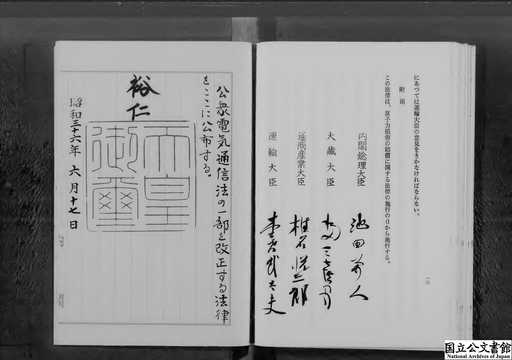 にあつては運輸大臣の意見をきかなければならない。
附則
この法律は、原子力損害の賠償に関する法律の施行の日から施行する。
内閣総理大臣
池田勇人
大蔵大臣
通商産業大臣
椎名悦三郎
運輸大臣
一〇
公衆電気通信法の一部を改正する法律
をここに公布する。
裕仁
天皇
御璽
昭和三十六年六月十七日
国立公文書館
National Archives of Japan